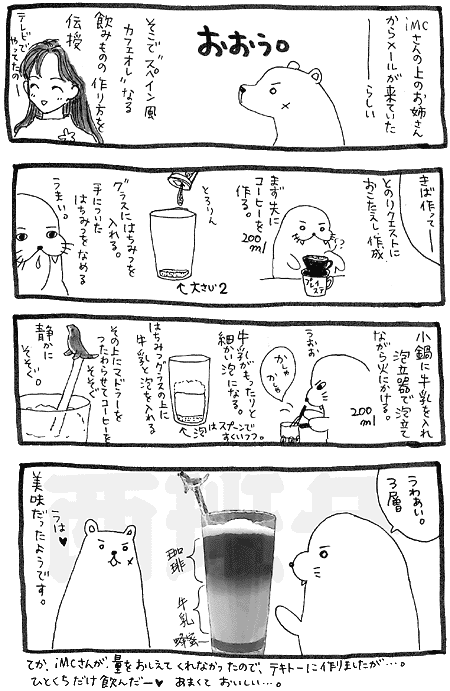 iMCさんの上のお姉さん
からメールが来ていた
――らしい
おおう。
そこで"スペイン風
カフェオレ"なる
飲みものの作り方を
伝授
テレビで
やってたのー
きば作ってー
とのリクエストに
おこたえし、作成
まず先に
コーヒーを
200ml
作る。
とろりん
グラスにはちみつを
入れる。
↑大さじ2
手についた
はちみつをなめる
うまい。
小鍋に牛乳を入れ
泡立器で泡立て
ながら火にかける。
200ml
かしゅ
かしゅ
うおお
牛乳がもったりと
細かい泡になる。
はちみつグラスの上に
牛乳と泡を入れる
↑泡はスプーンで
すくいつつ。
その上にマドラーを
つたわらせてコーヒーを
そそぐ
静かに
そそぐ。
うわあい。
3層
珈琲
牛乳
蜂蜜
うは♥
美味だったようです。
てか、iMCさんが、量をおしえてくれなかったので、テキトーに作りましたが…。
ひとくちだけ飲んだー♥ あまくておいしい…。